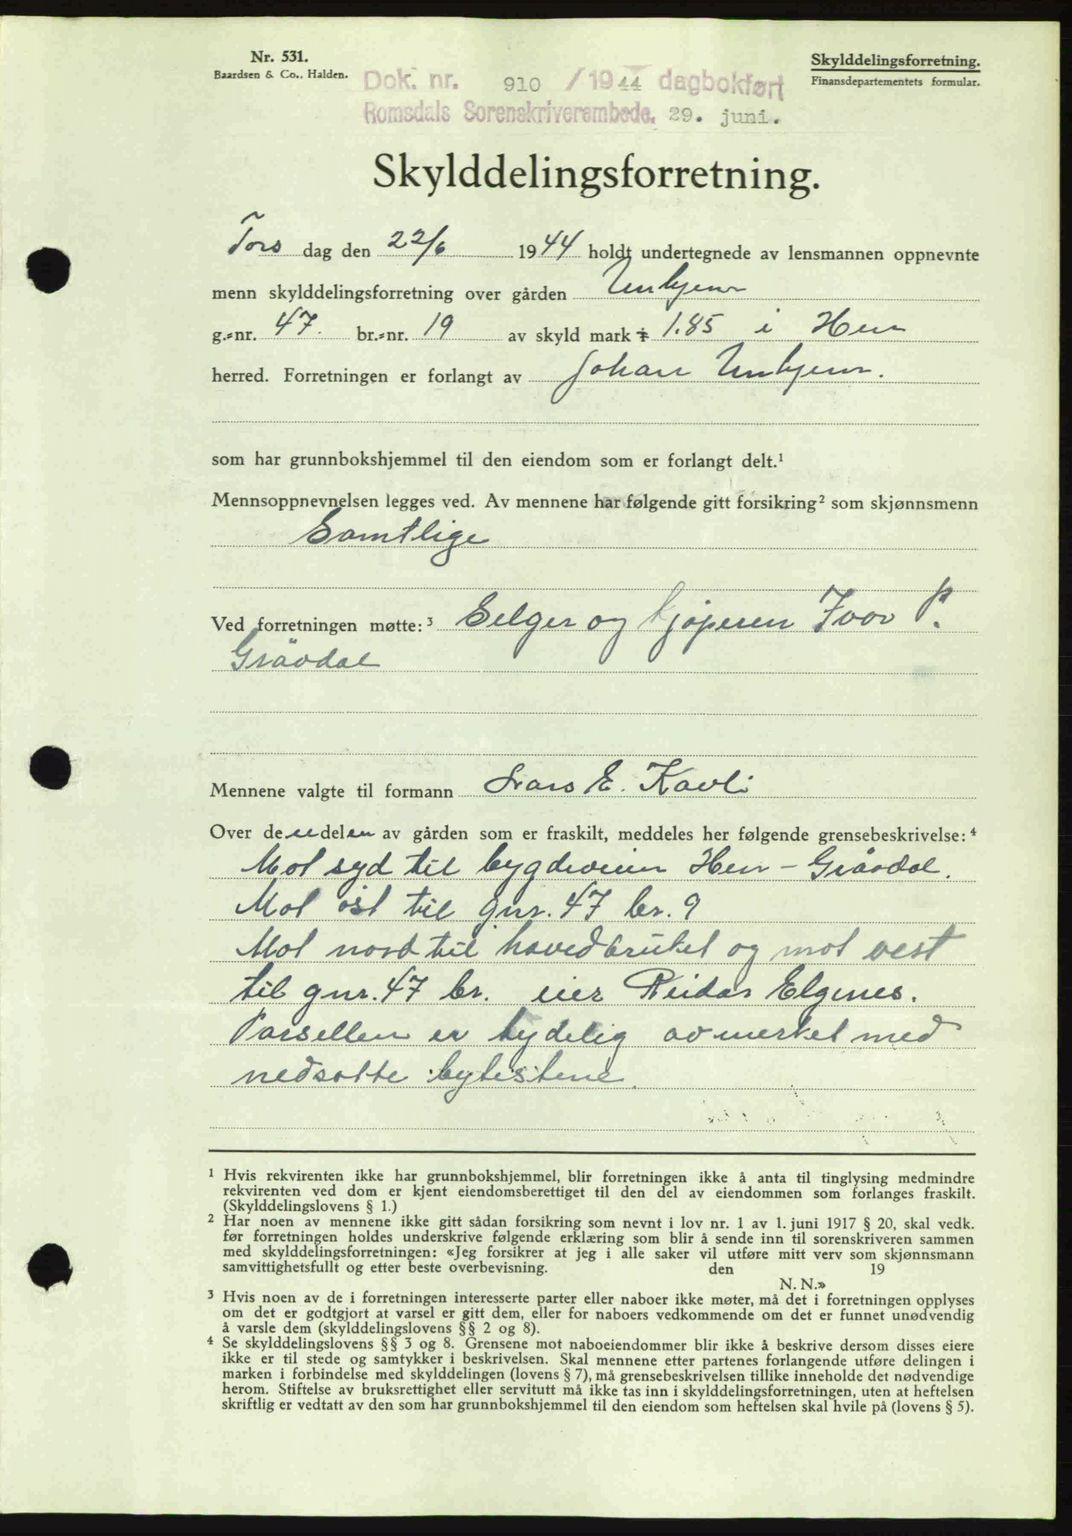 Nr. 531.
Baardsen & Co., Halden.
Skylddelingsforretning.
Finansdepartementets formular.
Dok. nr. 910 / 1944 dagbokført
Romsdals Sorenskriverembede. 29. juni.
Skylddelingsforretning.
Tors dag den 22/6 1944 holdt undertegnede av lensmannen oppnevnte
menn skylddelingsforretning over gården Unhjem
g.-nr. 47. br.-nr. 19 av skyld mark 1.85 i Hen
herred. Forretningen er forlangt av Johan Unhjem.
som har grunnbokshjemmel til den eiendom som er forlangt delt.¹
Mennsoppnevnelsen legges ved. Av mennene har følgende gitt forsikring² som skjønnsmenn
Samtlige
Ved forretningen møtte:³ Selger og kjøperen Ivar P.
Gråvdal
Mennene valgte til formann Lars E. Kavli
Over de delen av gården som er fraskilt, meddeles her følgende grensebeskrivelse:⁴
Mot syd til bygdeveien Hen - Gråvdal.
Mot øst til gnr. 47 br. 9
Mot nord til hovedbruket og mot vest
til gnr. 47 br. eier Reidar Elgenes.
Parsellen er tydelig avmerket med
nedsatte bytestene.
¹ Hvis rekvirenten ikke har grunnbokshjemmel, blir forretningen ikke å anta til tinglysing medmindre
rekvirenten ved dom er kjent eiendomsberettiget til den del av eiendommen som forlanges fraskilt.
(Skylddelingslovens § 1.)
² Har noen av mennene ikke gitt sådan forsikring som nevnt i lov nr. 1 av 1. juni 1917 § 20, skal vedk.
før forretningen holdes underskrive følgende erklæring som blir å sende inn til sorenskriveren sammen
med skylddelingsforretningen: «Jeg forsikrer at jeg i alle saker vil utføre mitt verv som skjønnsmann
samvittighetsfullt og etter beste overbevisning. den 19
N. N.»
³ Hvis noen av de i forretningen interesserte parter eller naboer ikke møter, må det i forretningen opplyses
om det er godtgjort at varsel er gitt dem, eller for naboers vedkommende om det er funnet unødvendig
å varsle dem (skylddelingslovens §§ 2 og 8).
⁴ Se skylddelingslovens §§ 3 og 8. Grensene mot naboeiendommer blir ikke å beskrive dersom disses eiere
ikke er til stede og samtykker i beskrivelsen. Skal mennene etter partenes forlangende utføre delingen i
marken i forbindelse med skylddelingen (lovens § 7), må grensebeskrivelsen tillike inneholde det nødvendige
herom. Stiftelse av bruksrettighet eller servitutt må ikke tas inn i skylddelingsforretningen, uten at heftelsen
skriftlig er vedtatt av den som har grunnbokshjemmel til den eiendom som heftelsen skal hvile på (lovens § 5).